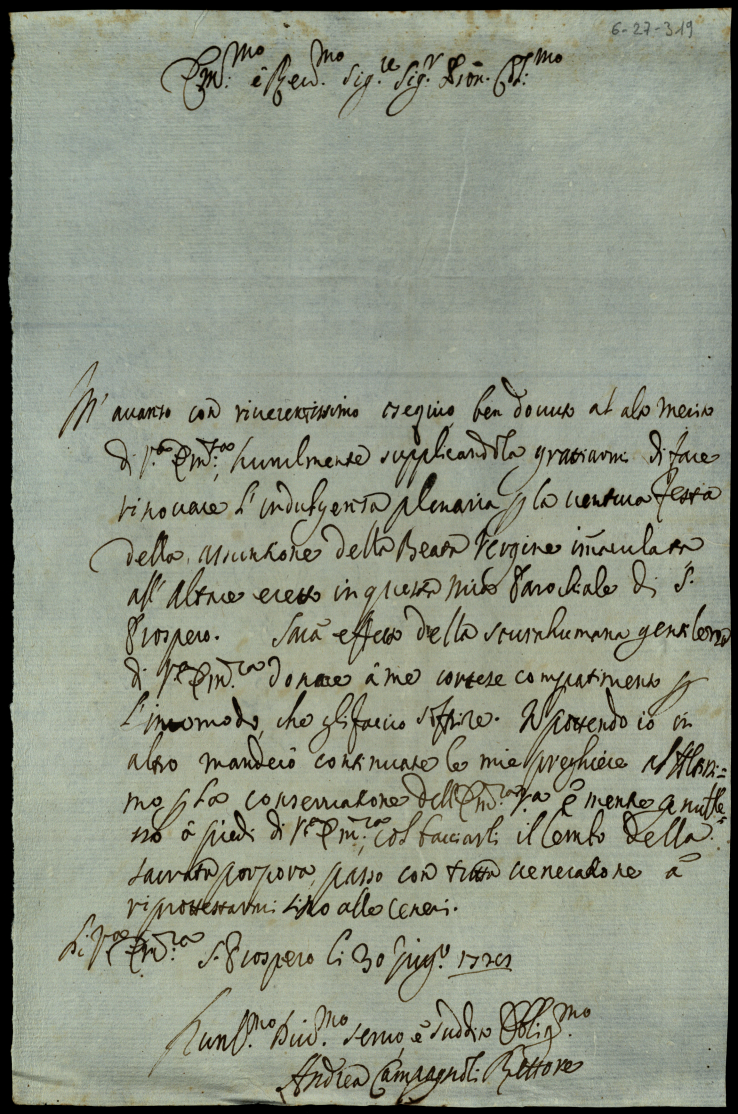 6-27-319
Em:mo e Reu.mo Sig.re Sig.r Pron. Col:mo
M'auanzo con riuerentissimo ossequio ben douuto al alto merito
di V.a Em:za, humilmente supplicandola gratiarmi di fare
rinouare l'indulgenza plenaria p la uentura festa
della assuntione della Beata Vergine imaculata
all'Altare eretto in questa mia Parochiale di S.
Prospero. Sarà effetto della sourahumana gentilezza
di V.a Em.za donare à me cortese compatimento p
l'incomodo, che gli faccio soffrire. N potendo io in
altro manderò continuate le mie preghiere all'Altissi=
mo p la conseruatione dell'Em.za V.a e mentre genufle=
sso à piedi di V.a Em.za, col bacciarli il lembo della
sacrata porpora, passo con tutta ueneratione à
riprottestarmi sino alle ceneri.
Di V.a Em.za S. Prospero li 30 Giug.o
Huml.mo Diu.mo seruo, e suddito Oblig.mo
Andrea Campagnoli Rettore